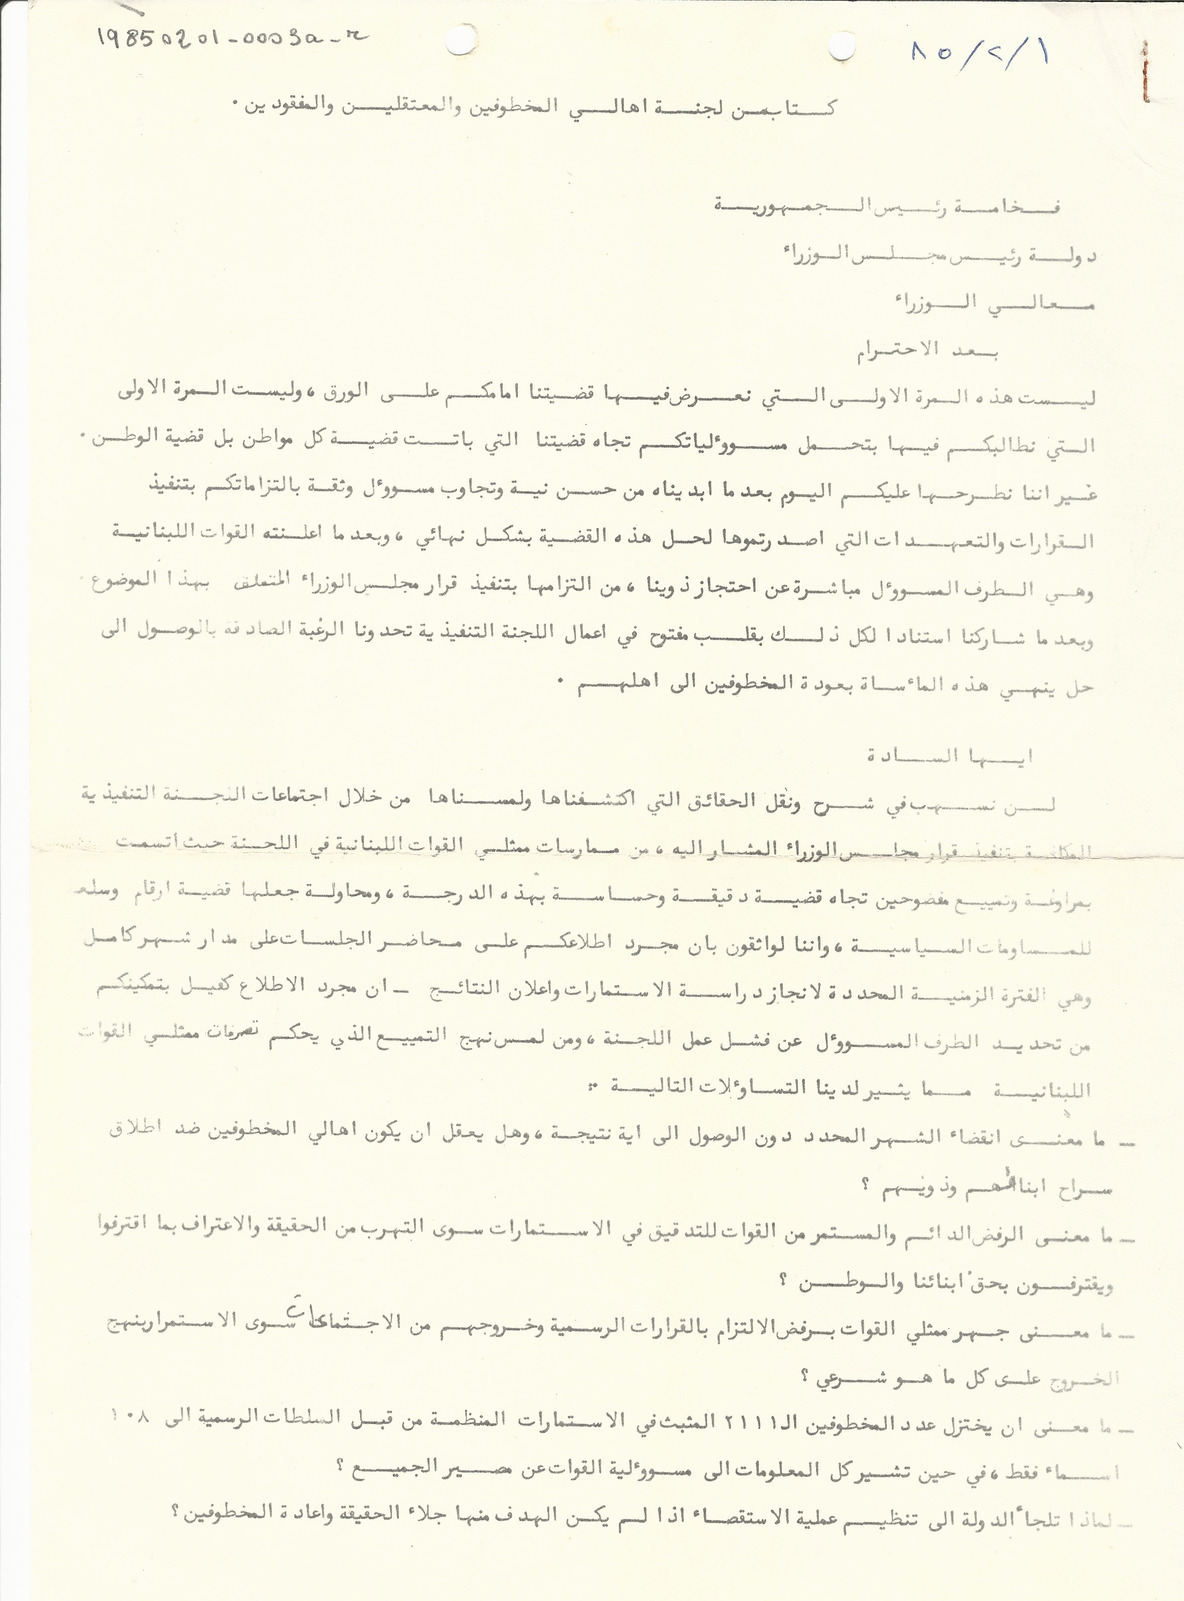 19850201-0003a-r
٨٥/٢/١
كتابمن لجنة اهالي المخطوفين والمعتقلين والمفقودين .
فخامة رئيس الجمهورية
دولة رئيس مجلس الوزراء
معالي الوزراء
بعد الاحترام
ليست هذه المرة الاولى التي نعرض فيها قضيتنا امامكم على الورق ، وليست المرة الاولى
التي نطالبكم فيها بتحمل مسوولياتكم تجاه قضيتنا التي باتت قضية كل مواطن بل قضية الوطن .
غير اننا نطرحها عليكم اليوم بعد ما ابديناه من حسن نية وتجاوب مسوول وثقة بالتزاماتكم بتنفيذ
القرارات والتعهدات التي اصدرتموها لحل هذه القضية بشكل نهائي ، وبعد ما اعلنته القوات اللبنانية
وهي الطرف المسوول مباشرة عن احتجاز ذوينا ، من التزامها بتنفيذ قرار مجلس الوزراء المتعلق بهذا الموضوع
وبعد ما شاركنا استنادا لكل ذلك بقلب مفتوح في اعمال اللجنة التنفيذية تحدونا الرغبة الصادقة بالوصول الى
حل ينهي هذه المأساة بعودة المخطوفين الى اهلهم .
ايها السادة
لن نسهب في شرح ونقل الحقائق التي اكتشفناها ولمسناها من خلال اجتماعات اللجنة التنفيذية
المكلفة بتنفيذ قرار مجلس الوزراء المشار اليه ، من ممارسات ممثلي القوات اللبنانية في اللجنة حيث اتسمت
بمراوغة وتمييع مفضوحين تجاه قضية دقيقة وحساسة بهذه الدرجة ، ومحاولة جعلها قضية ارقام وسلعـ
للمساومات السياسية ، واننا لواثقون بان مجرد اطلاعكم على محاضر الجلسات على مدار شهر كامل
وهي الفترة الزمنية المحددة لانجاز دراسة الاستمارات واعلان النتائج - ان مجرد الاطلاع كفيل بتمكينكم
من تحديد الطرف المسوول عن فشل عمل اللجنة ، ومن لمس نهج التمييع الذي يحكم تصرفات ممثلي القوات
اللبنانية مما يثير لدينا التساولات التالية :
- ما معنى انقضاء الشهر المحدد دون الوصول الى اية نتيجة ، وهل يعقل ان يكون اهالي المخطوفين ضد اطلاق
سراح ابنائهم وذويهم ؟
- ما معنى الرفض الدائم والمستمر من القوات للتدقيق في الاستمارات سوى التهرب من الحقيقة والاعتراف بما اقترفوا
ويقترفون بحق ابنائنا والوطن ؟
- ما معنى جهر ممثلي القوات برفض الالتزام بالقرارات الرسمية وخروجهم من الاجتماعات سوى الاستمرار بنهج
الخروج على كل ما هو شرعي ؟
- ما معنى ان يختزل عدد المخطوفين الـ ٢١١١ المثبت في الاستمارات المنظمة من قبل السلطات الرسمية الى ١٠٨
اسماء فقط ، في حين تشير كل المعلومات الى مسوولية القوات عن مصير الجميع ؟
- لماذا تلجأ الدولة الى تنظيم عملية الاستقصاء اذا لم يكن الهدف منها جلاء الحقيقة واعادة المخطوفين ؟